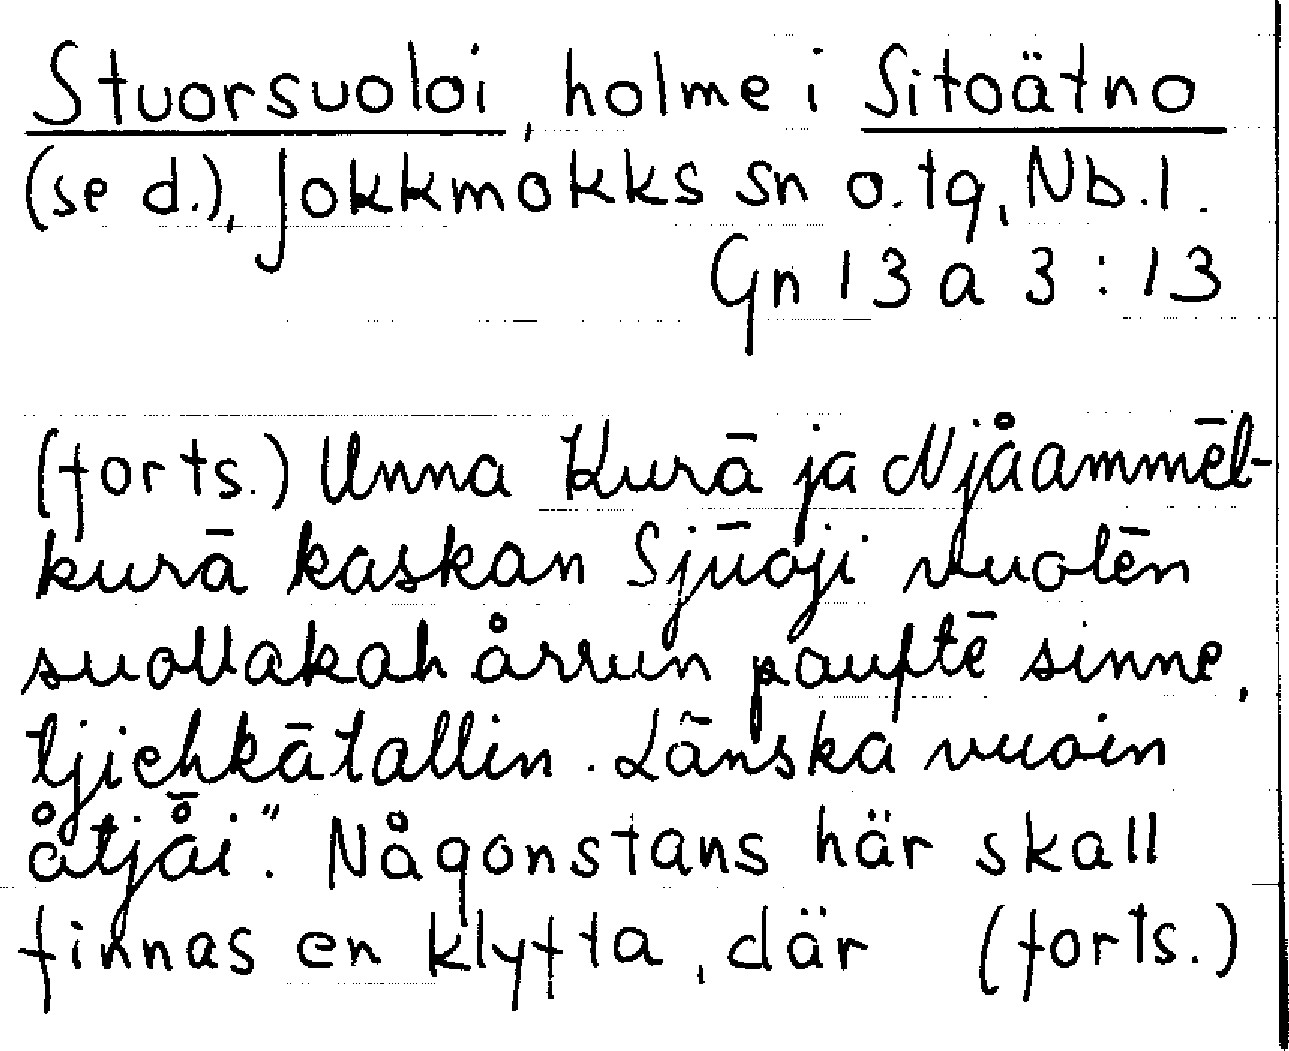 Stuorsuoloi, holme i Sitoätno
(se d.), Jokkmokks sn o. tg, Nb. l.
Gn 13 a 3 : 13
(forts.) Unna Kurā ja Njåammēl-
kurā kaskan Sjūoji vuolēn
suollakah årrun pauftē sinne,
tjiehkātallin. Lānska vuoin
åtjå̄i". Någonstans här skall
finnas en klyfta, där (forts.)